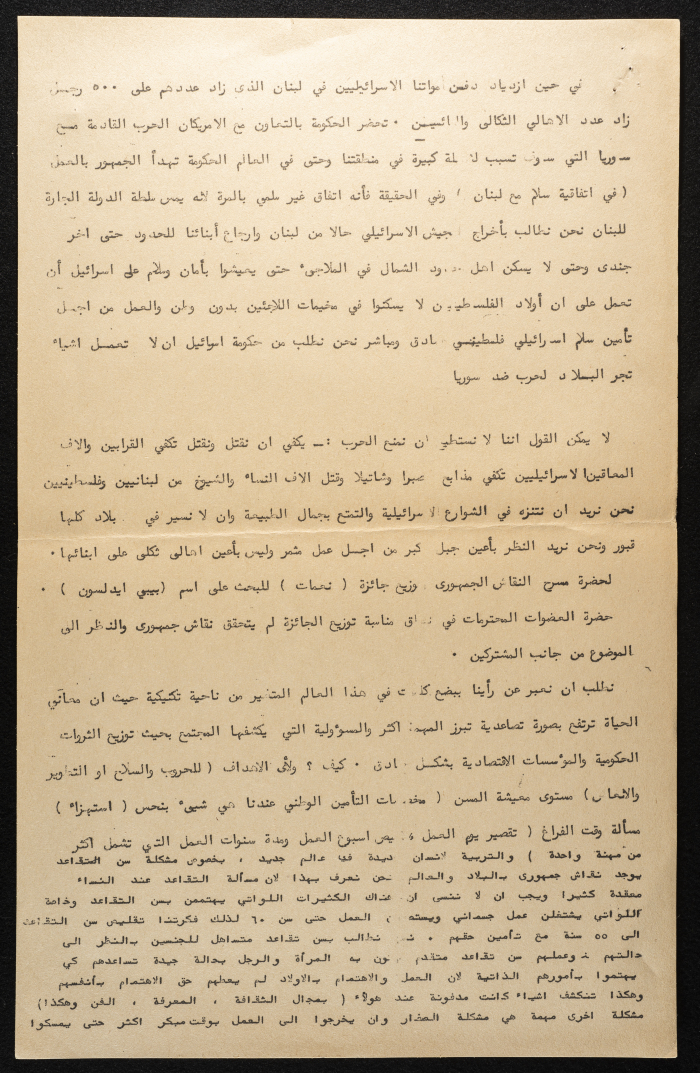 في حين ازدياد دفن امواتنا الاسرائيليين في لبنان الذى زاد عددهم على ٥٠٠ رجل
زاد عدد الاهالي الثكالى ٠ تحضر الحكومة بالتعاون مع الامريكان الحرب القادمة مع
سوريا التي سوف تسبب كبيرة في منطقتنا وحتى في العالم الحكومة تهدأ الجمهور بالعمل
( في اتفاقية سلام مع لبنان ) وفي الحقيقة فأنه اتفاق غير سلمي بالمرة لانه يمس سلطة الدولة الجارة
للبنان نحن نطالب بأخراج جيش الاسرائيلي حالا من لبنان وارجاع أبنائنا للحدود حتى اخر
جندى وحتى لا يسكن اهل حدود الشمال في الملاجىء حتى يعيشوا بأمان وسلام على اسرائيل أن
تعمل على ان أولاد الفلسطينيين لا يسكنوا في مخيمات اللاجئين بدون وطن والعمل من اجل
تأمين سلام اسرائيلي فلسطيني صادق ومباشر نحن نطلب من حكومة اسرائيل ان لا تعمل اشياء
تجر البلاد لحرب ضد سوريا
لا يمكن القول اننا لا نستطيع ان نمنع الحرب :ــ يكفي ان نقتل ونقتل تكفي القرابين والاف
المعاقين الاسرائيليين تكفي مذابح صبرا وشاتيلا وقتل الاف النساء والشيوخ من لبنانيين وفلسطينيين
نحن نريد ان نتنزه في الشوارع الاسرائيلية والتمتع بجمال الطبيعة وان لا نسير في بلاد كلها
قبور ونحن نريد النظر بأعين جبل كبر من اجل عمل مثمر وليس بأعين اهالى ثكلى على ابنائها ٠
لحضرة مسرح النقاش الجمهورى توزيع جائزة ( نعمات ) للبحث على اسم (بيبي ايدلسون ) ٠
حضرة العضوات المحترمات في نطاق مناسبة توزيع الجائزة لم يتحقق نقاش جمهورى والنظر الى
الموضوع من جانب المشتركين ٠
نطلب ان نعبر عن رأينا ببضع كلمات في هذا العالم المتغير من ناحية تكنيكية حيث ان معاني
الحياة ترتفع بصورة تصاعدية تبرز المهم: اكثر والمسوؤلية التي يكتشفها المجتمع بحيث توزيع الثروات
الحكومية والموءسسات الاقتصادية بشكل صادق ٠ كيف ؟ ولأى الاهداف ( للحروب والسلاح او التطوير
والانعاش) مستوى معيشة المسن ( مخصصات التأمين الوطني عندنا هي شيىء بنحس ( استهزاء )
مسألة وقت الفراغ ( تقصير يوم العمل اسبوع العمل ومدة سنوات العمل التي تشمل اكثر
من مهنة واحدة ) والتربية لانسان جديدة في عالم جديد ، بخصوص مشكلة سن التقاعد
يوجد نقاش جمهورى بالبلاد والعالم نحن نعرف بهذا لان مسألة التقاعد عند النساء
معقدة كثيرا ويجب ان لا ننسى ان هناك الكثيرات اللواتي يهتممن بسن التقاعد وخاصة
اللواتي يشتغلن عمل جسماني العمل حتى سن ٦٠ لذلك فكرتنا تقليص سن التقاعد
الى ٥٥ سنة مع تأمين حقهم ٠ نطالب بسن تقاعد متساهل للجنسين بالنظر الى
حالتهم وعملهم سن تقاعد متقدم به المرأة والرجل بحالة جيدة تساعدهم كي
يهتموا بأمورهم الذاتية لان العمل والاهتمام بالاولاد لم يعطهم حق الاهتمام بأنفسهم
وهكذا تنكشف اشياء كانت مدفونة عند هولاء ( بمجال الثقافة ، المعرفة ، الفن وهكذا)
مشكلة اخرى مهمة هي مشكلة الصغار وان يخرجوا الى العمل بوقت مبكر اكثر حتى يمسكوا